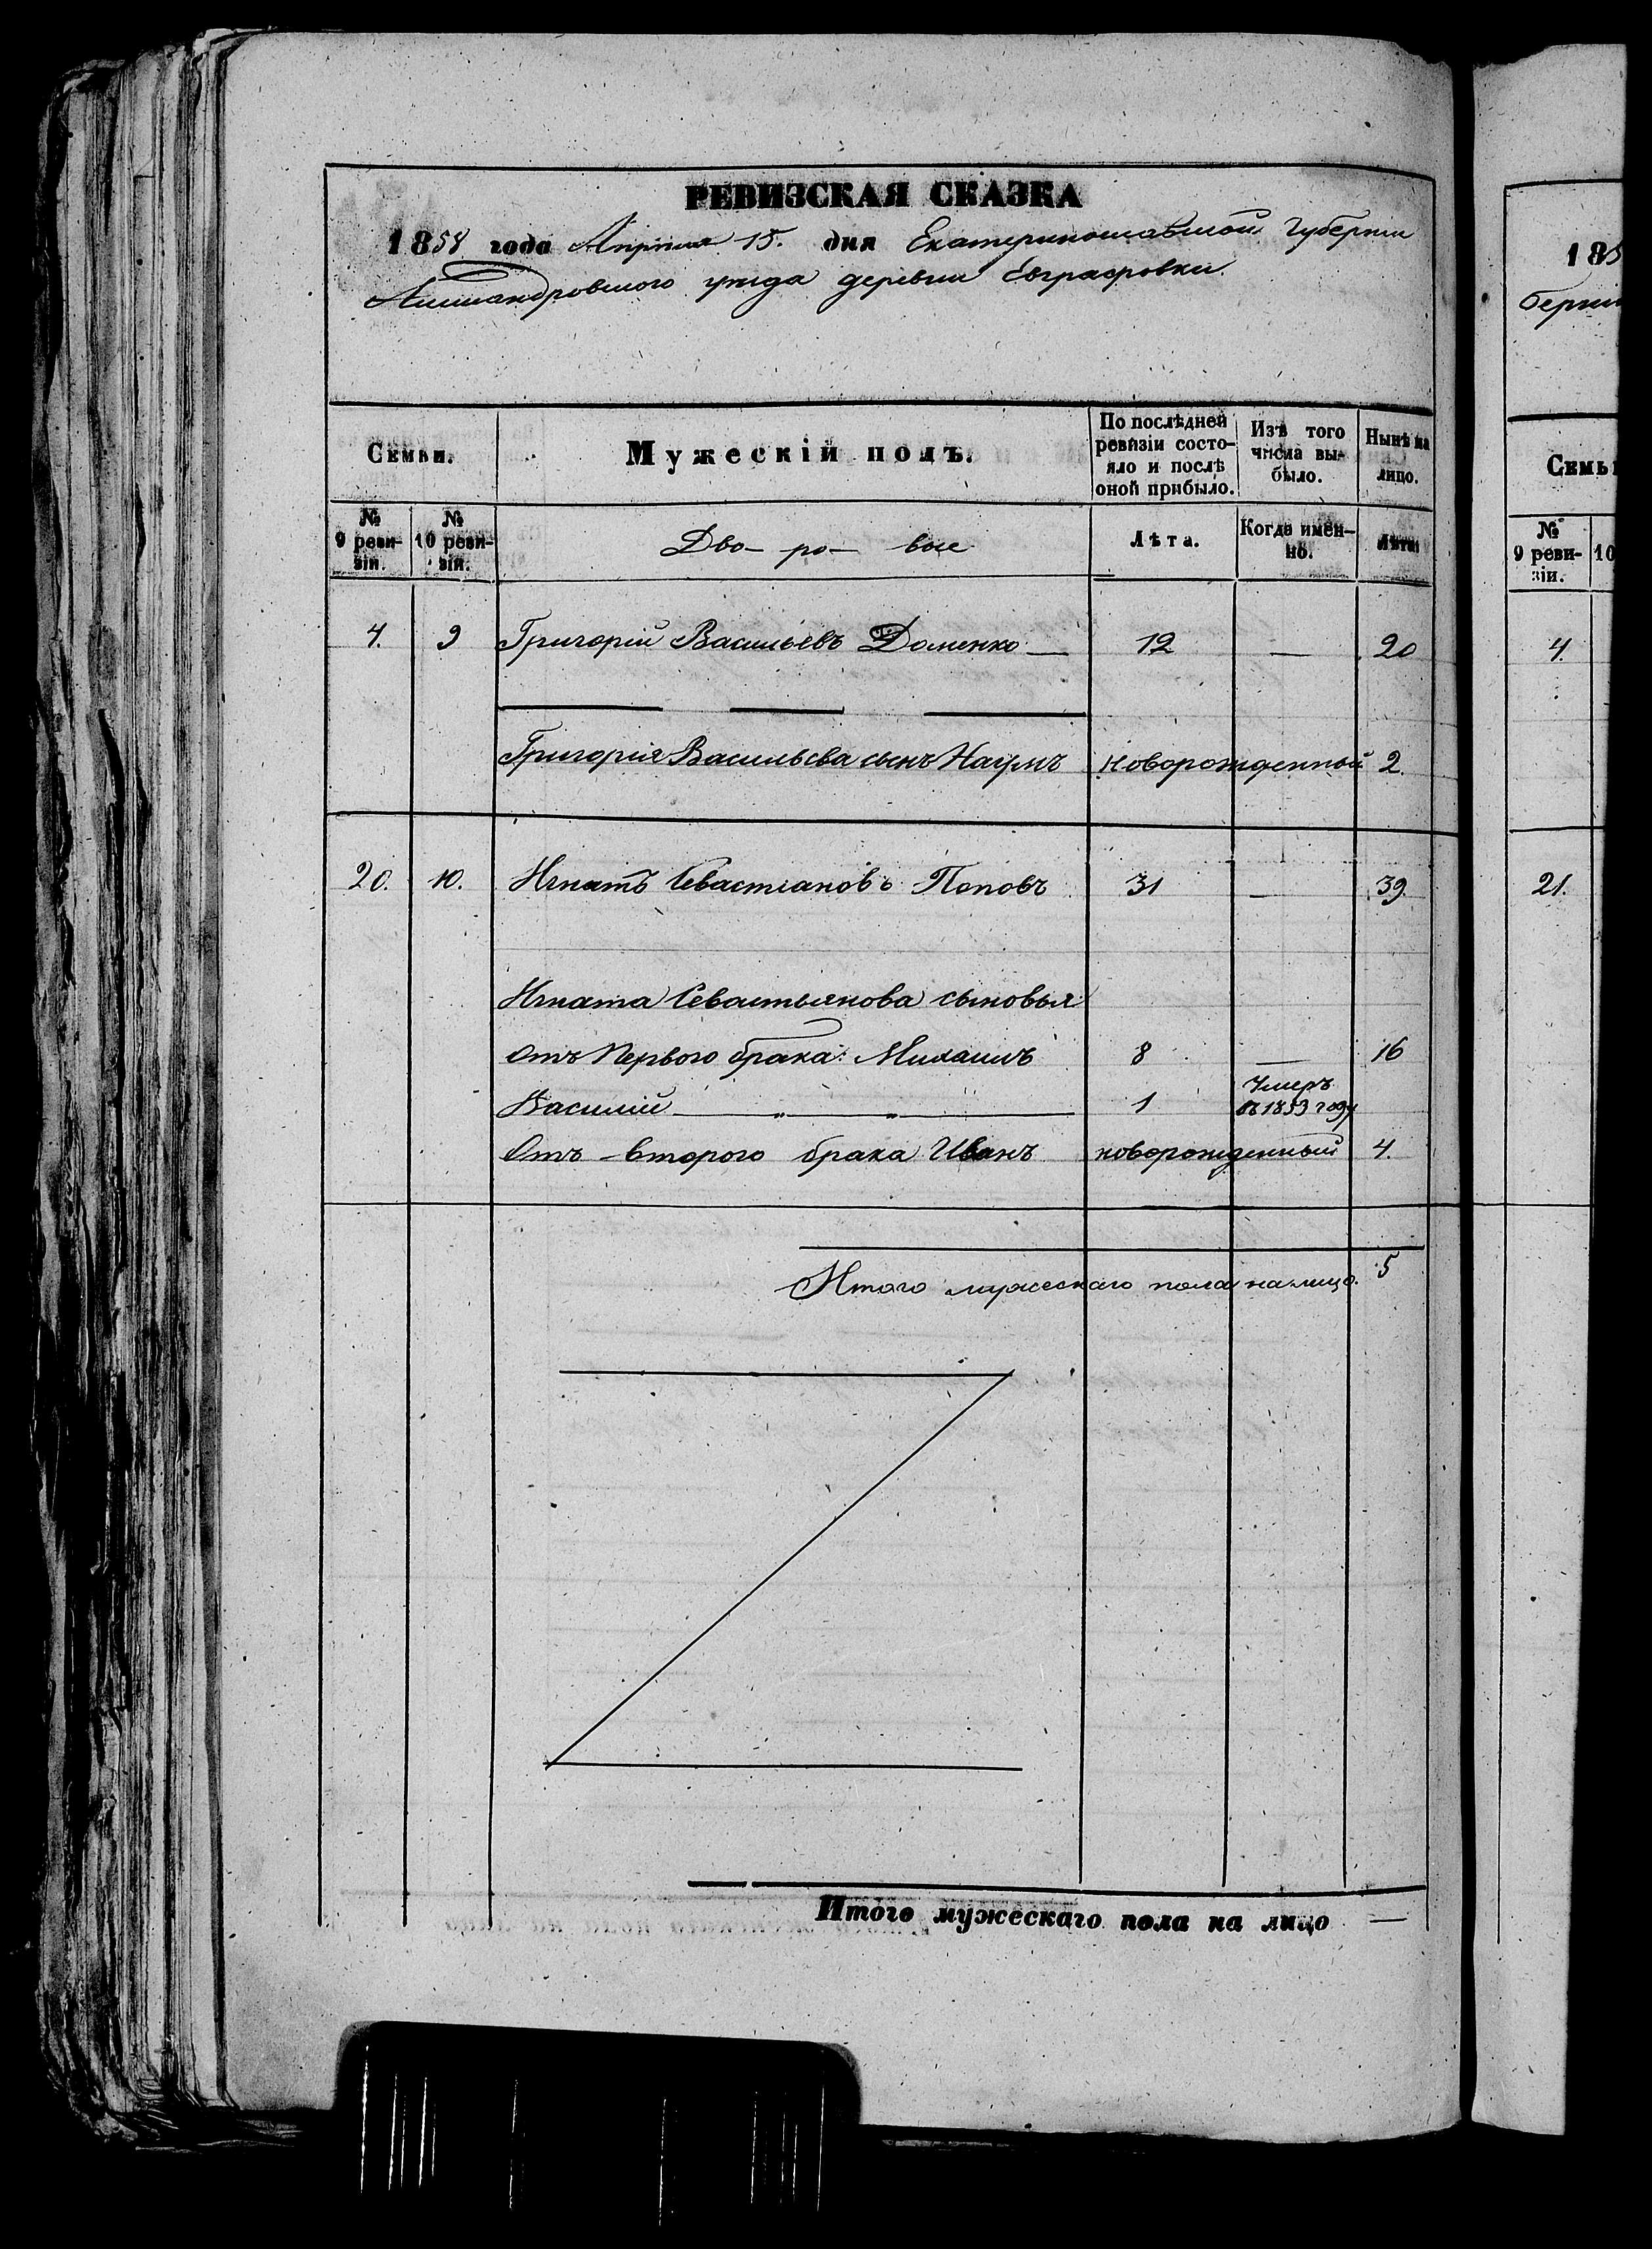 РЕВИЗСКАЯ СКАЗКА
1858 года Апрѣля 15. дня Екатеринославской Губерніи
Александровского уѣзда деревни Евграфовки.
Семьи. Мужескій полъ. По послѣдней ревизіи состояло и послѣ оной прибыло. Изъ того числа выбыло. Нынѣ на лицо.
№ 9 ревизіи. № 10 ревизіи. Дво- ро- вые Лѣта. Когда именно. Лѣта.
4. 9 Григорій Васильевъ Доменко — 12 — 20
Григорія Васильева сынъ Наумъ новорожденной 2.
20. 10. Игнатъ Севастіановъ Поповъ 31 — 39.
Игната Севастьянова сыновья
Отъ Первого брака: Михаилъ 8 — 16
Василій — „ — „ — 1 Умеръ въ 1853 году
Отъ - второго брака Иванъ новорожденный 4.
Итого мужескаго пола на лицо. 5
Итого мужескаго пола на лицо —
185
Семь
№ 9 ревизіи. 10
4.
21.